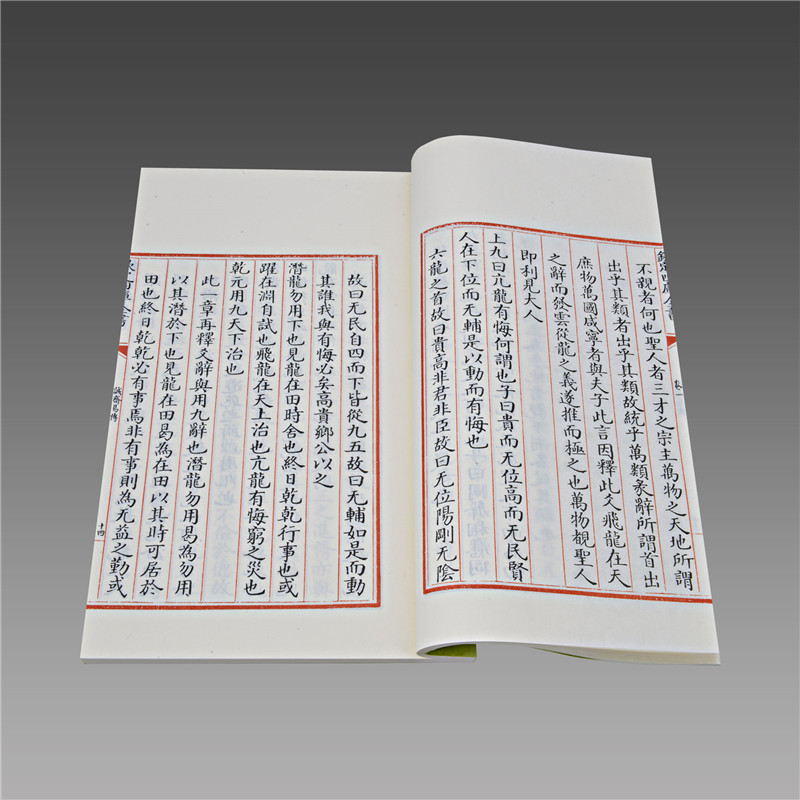 不覩者何也聖人者三才之宗主萬物之天地所謂
出乎其類者出乎其類故統乎萬類彖辭所謂首出
庶物萬國咸寧者與夫子此言因釋此爻飛龍在天
之辭而然雲從龍之義遂推而極之也萬物覩聖人
即利見大人
上九曰亢龍有悔何謂也子曰貴而无位高而无民賢
人在下位而无輔是以動而有悔也
六龍之首故曰貴高非君非臣故曰无位陽剛无陰
故曰无民自四而下皆從九五故曰无輔如是而動
其誰我與有悔必矣高貴鄉公以之
潛龍勿用下也見龍在田時舍也終日乾乾行事也或
躍在淵自試也飛龍在天上治也亢龍有悔窮之災也
乾元用九天下治也
此一章再釋爻辭與用九辭也潛龍勿用曷為勿用
以其潛於下也見龍在田曷為在田以其時可居於
田也終日乾乾必有事焉非有事則為无益之勤或
誠齋易傳
十四